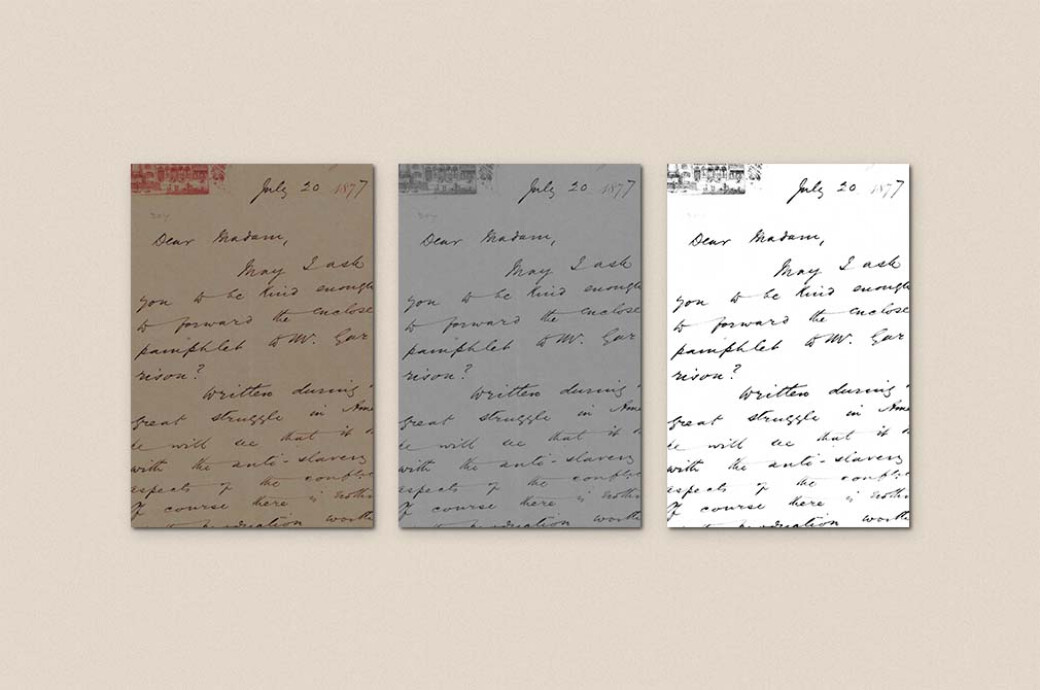 July 20 1877
Dear Madam,
May I ask
you to be kind enough
to forward the enclose
pamphlet to Mr. Gar
rison?
Written during
great struggle in Ame
will see that it
with the anti-slavery
aspects of the confli
Of course there is noth
production worth
July 20 1877
Dear Madam,
May I ask
you to be kind enough
to forward the enclose
pamphlet to Mr. Gar
rison?
Written during
great struggle in Ame
will see that it
with the anti-slavery
aspects of the confli
Of course there is noth
production worth
July 20 1877
Dear Madam,
May I ask
you to be kind enough
to forward the enclose
pamphlet to Mr. Gar
rison?
Written during
great struggle in Ame
will see that it
with the anti-slavery
aspects of the confli
Of course there is noth
production worth